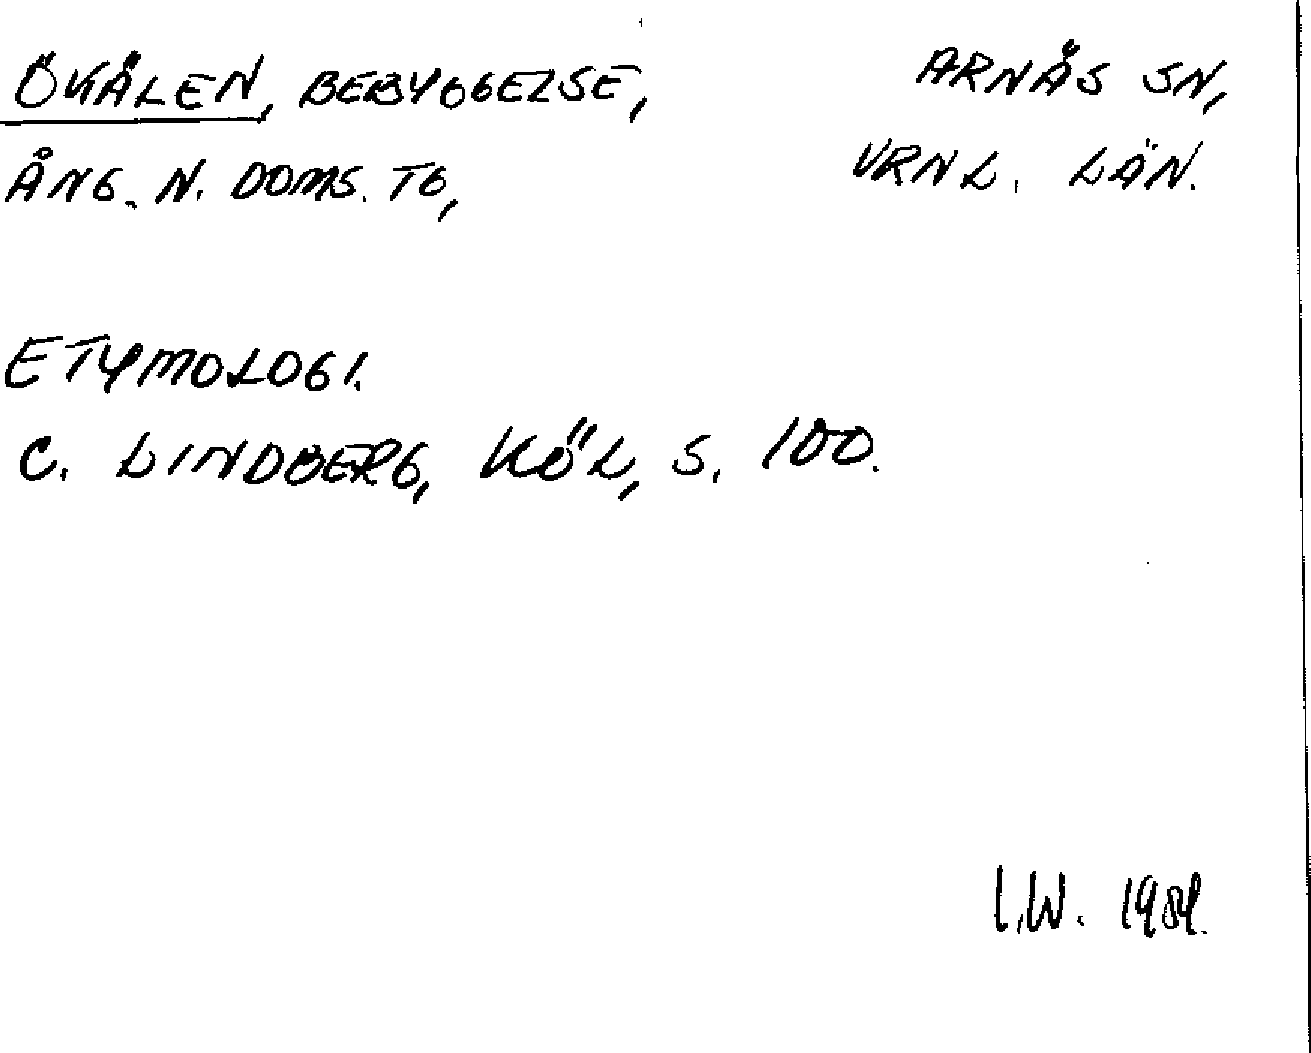 ÖKÅLEN, BEBYGGELSE, ARNÄS SN,
ÅNG. N. DOMS. TG, VRNL. LÄN.
ETYMOLOGI.
C. LINDBERG, KÖL, S. 100.
I.W. 1984.